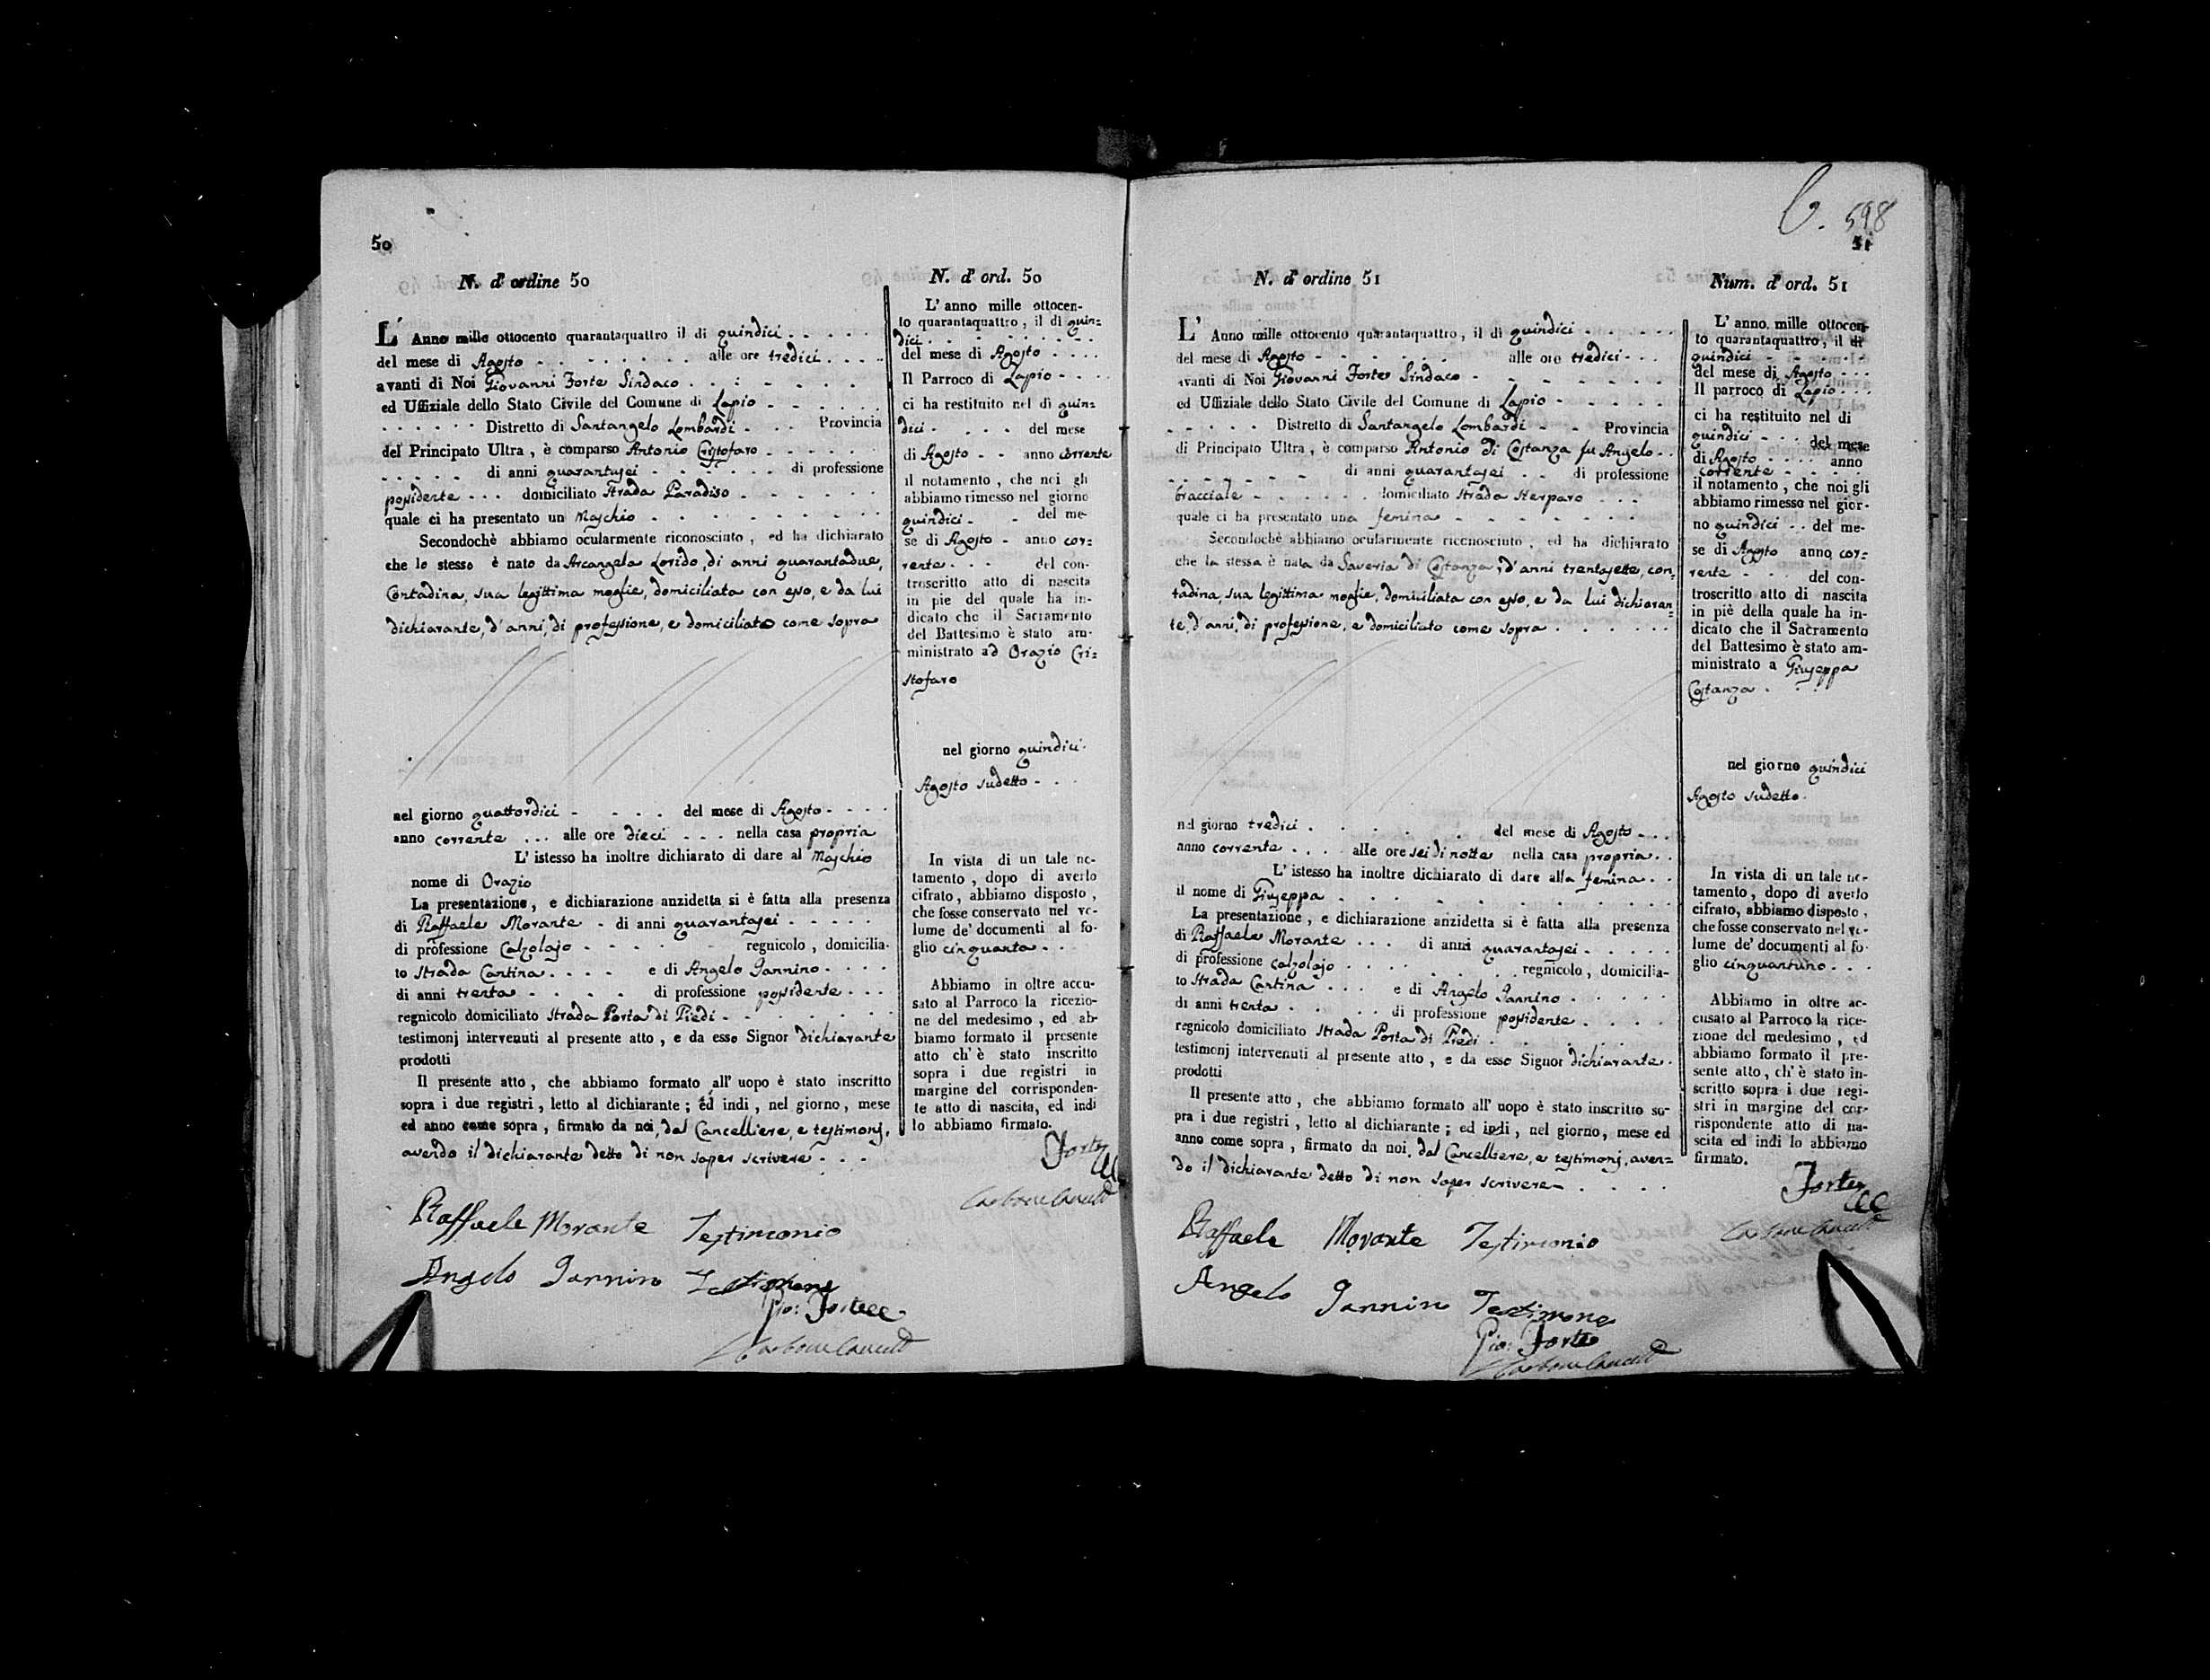 50
N. d' ordine 50
L' Anno mille ottocento quarantaquattro il di quindici
del mese di Agosto alle ore tredici
avanti di Noi Giovanni Forte Sindaco
ed Uffiziale dello Stato Civile del Comune di Lapio
Distretto di Santangelo Lombardi Provincia
del Principato Ultra, è comparso Antonio Cristofaro
di anni quarantasei di professione
possidente domiciliato Strada Paradiso
quale ci ha presentato un Maschio
Secondochè abbiamo ocularmente riconosciuto, ed ha dichiarato
che lo stesso è nato da Arcangela Lorido, di anni quarantadue,
Contadina, sua legittima moglie, domiciliata con esso, e da lui
dichiarante, d'anni, di professione, e domiciliato come sopra
nel giorno quattordici del mese di Agosto
anno corrente alle ore dieci nella casa propria
L' istesso ha inoltre dichiarato di dare al Maschio
nome di Orazio
La presentazione, e dichiarazione anzidetta si è fatta alla presenza
di Raffaele Morante di anni quarantasei
di professione Calzolajo regnicolo, domicilia-
to Strada Cantina e di Angelo Iannino
di anni trenta di professione possidente
regnicolo domiciliato Strada Porta di Piedi
testimonj intervenuti al presente atto, e da esso Signor dichiarante
prodotti
Il presente atto, che abbiamo formato all' uopo è stato inscritto
sopra i due registri, letto al dichiarante; ed indi, nel giorno, mese
ed anno come sopra, firmato da noi, dal Cancelliere, e testimonj,
avendo il dichiarante detto di non saper scrivere
Raffaele Morante Testimonio
Angelo Iannino Testimone
Gio: Forte
N. d' ord. 50
L' anno mille ottocen-
to quarantaquattro, il di quin=
dici
del mese di Agosto
Il Parroco di Lapio
ci ha restituito nel di quin=
dici del mese
di Agosto anno corrente
il notamento, che noi gli
abbiamo rimesso nel giorno
quindici del me-
se di Agosto anno cor=
rente del con-
troscritto atto di nascita
in pie del quale ha in-
dicato che il Sacramento
del Battesimo è stato am-
ministrato ad Orazio Cri=
stofaro
nel giorno quindici
Agosto sudetto
In vista di un tale no-
tamento, dopo di averlo
cifrato, abbiamo disposto,
che fosse conservato nel vo-
lume de' documenti al fo-
glio cinquanta
Abbiamo in oltre accu-
sato al Parroco la ricezio-
ne del medesimo, ed ab-
biamo formato il presente
atto ch' è stato inscritto
sopra i due registri in
margine del corrisponden-
te atto di nascita, ed indi
lo abbiamo firmato.
Forte
598
51
N. d' ordine 51
L' Anno mille ottocento quarantaquattro, il di quindici
del mese di Agosto alle ore tredici
avanti di Noi Giovanni Forte Sindaco
ed Uffiziale dello Stato Civile del Comune di Lapio
Distretto di Santangelo Lombardi Provincia
di Principato Ultra, è comparso Antonio di Costanza fu Angelo
di anni quarantasei di professione
bracciale domiciliato Strada Sterparo
quale ci ha presentato una femina
Secondochè abbiamo ocularmente riconosciuto, ed ha dichiarato
che la stessa è nata da Saveria di Costanza, d'anni trentasette, con=
tadina, sua legittima moglie, domiciliata con esso, e da lui dichiaran=
te, d'anni, di professione, e domiciliato come sopra
nel giorno tredici del mese di Agosto
anno corrente alle ore sei di notte nella casa propria
L' istesso ha inoltre dichiarato di dare alla femina
il nome di Giuseppa
La presentazione, e dichiarazione anzidetta si è fatta alla presenza
di Raffaele Morante di anni quarantasei
di professione calzolajo regnicolo, domicilia-
to Strada Cantina e di Angelo Iannino
di anni trenta di professione possidente
regnicolo domiciliato Strada Porta di Piedi
testimonj intervenuti al presente atto, e da esso Signor dichiarante
prodotti
Il presente atto, che abbiamo formato all' uopo è stato inscritto so-
pra i due registri, letto al dichiarante; ed indi, nel giorno, mese ed
anno come sopra, firmato da noi, dal Cancelliere, e testimonj, aven=
do il dichiarante detto di non saper scrivere
Raffaele Morante Testimonio
Angelo Iannino Testimone
Gio: Forte
Num. d' ord. 51
L' anno mille ottocen-
to quarantaquattro, il di
quindici
del mese di Agosto
Il parroco di Lapio
ci ha restituito nel di
quindici del mese
di Agosto anno
corrente
il notamento, che noi gli
abbiamo rimesso nel gior-
no quindici del me-
se di Agosto anno cor=
rente del con-
troscritto atto di nascita
in piè della quale ha in-
dicato che il Sacramento
del Battesimo è stato am-
ministrato a Giuseppa
Costanza
nel giorno quindici
Agosto sudetto
In vista di un tale no-
tamento, dopo di averlo
cifrato, abbiamo disposto,
che fosse conservato nel vo-
lume de' documenti al fo-
glio cinquantuno
Abbiamo in oltre ac-
cusato al Parroco la rice-
zione del medesimo, ed
abbiamo formato il pre-
sente atto, ch' è stato in-
scritto sopra i due regi-
stri in margine del cor-
rispondente atto di na-
scita ed indi lo abbiamo
firmato.
Forte